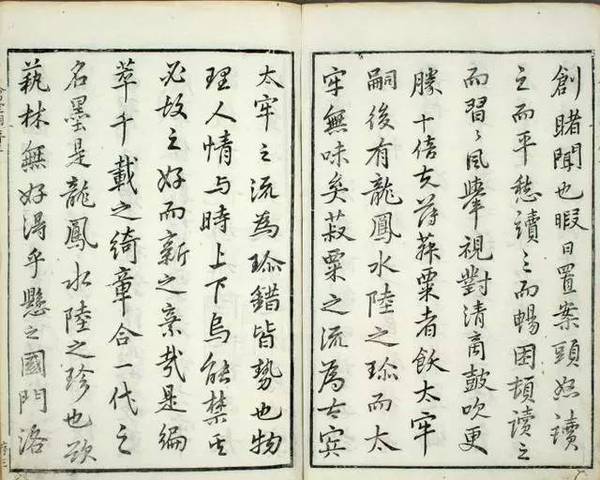 創睹聞也暇日置案頭怒讀
之而平愁讀之而暢困頓讀之
而習〻風舉視對清商鼓吹更
勝十倍夫茹藜粟者飫太牢
嗣後有龍鳳水陸之珍而太
牢無味矣菽粟之流為大賓
太牢之流為珍錯皆勢也物
理人情与時上下烏能禁其
必故之好而新之棄哉是編
萃千載之綺章合一代之
名墨是龍鳳水陸之珍也欤
藝林無好得乎懸之國門洛